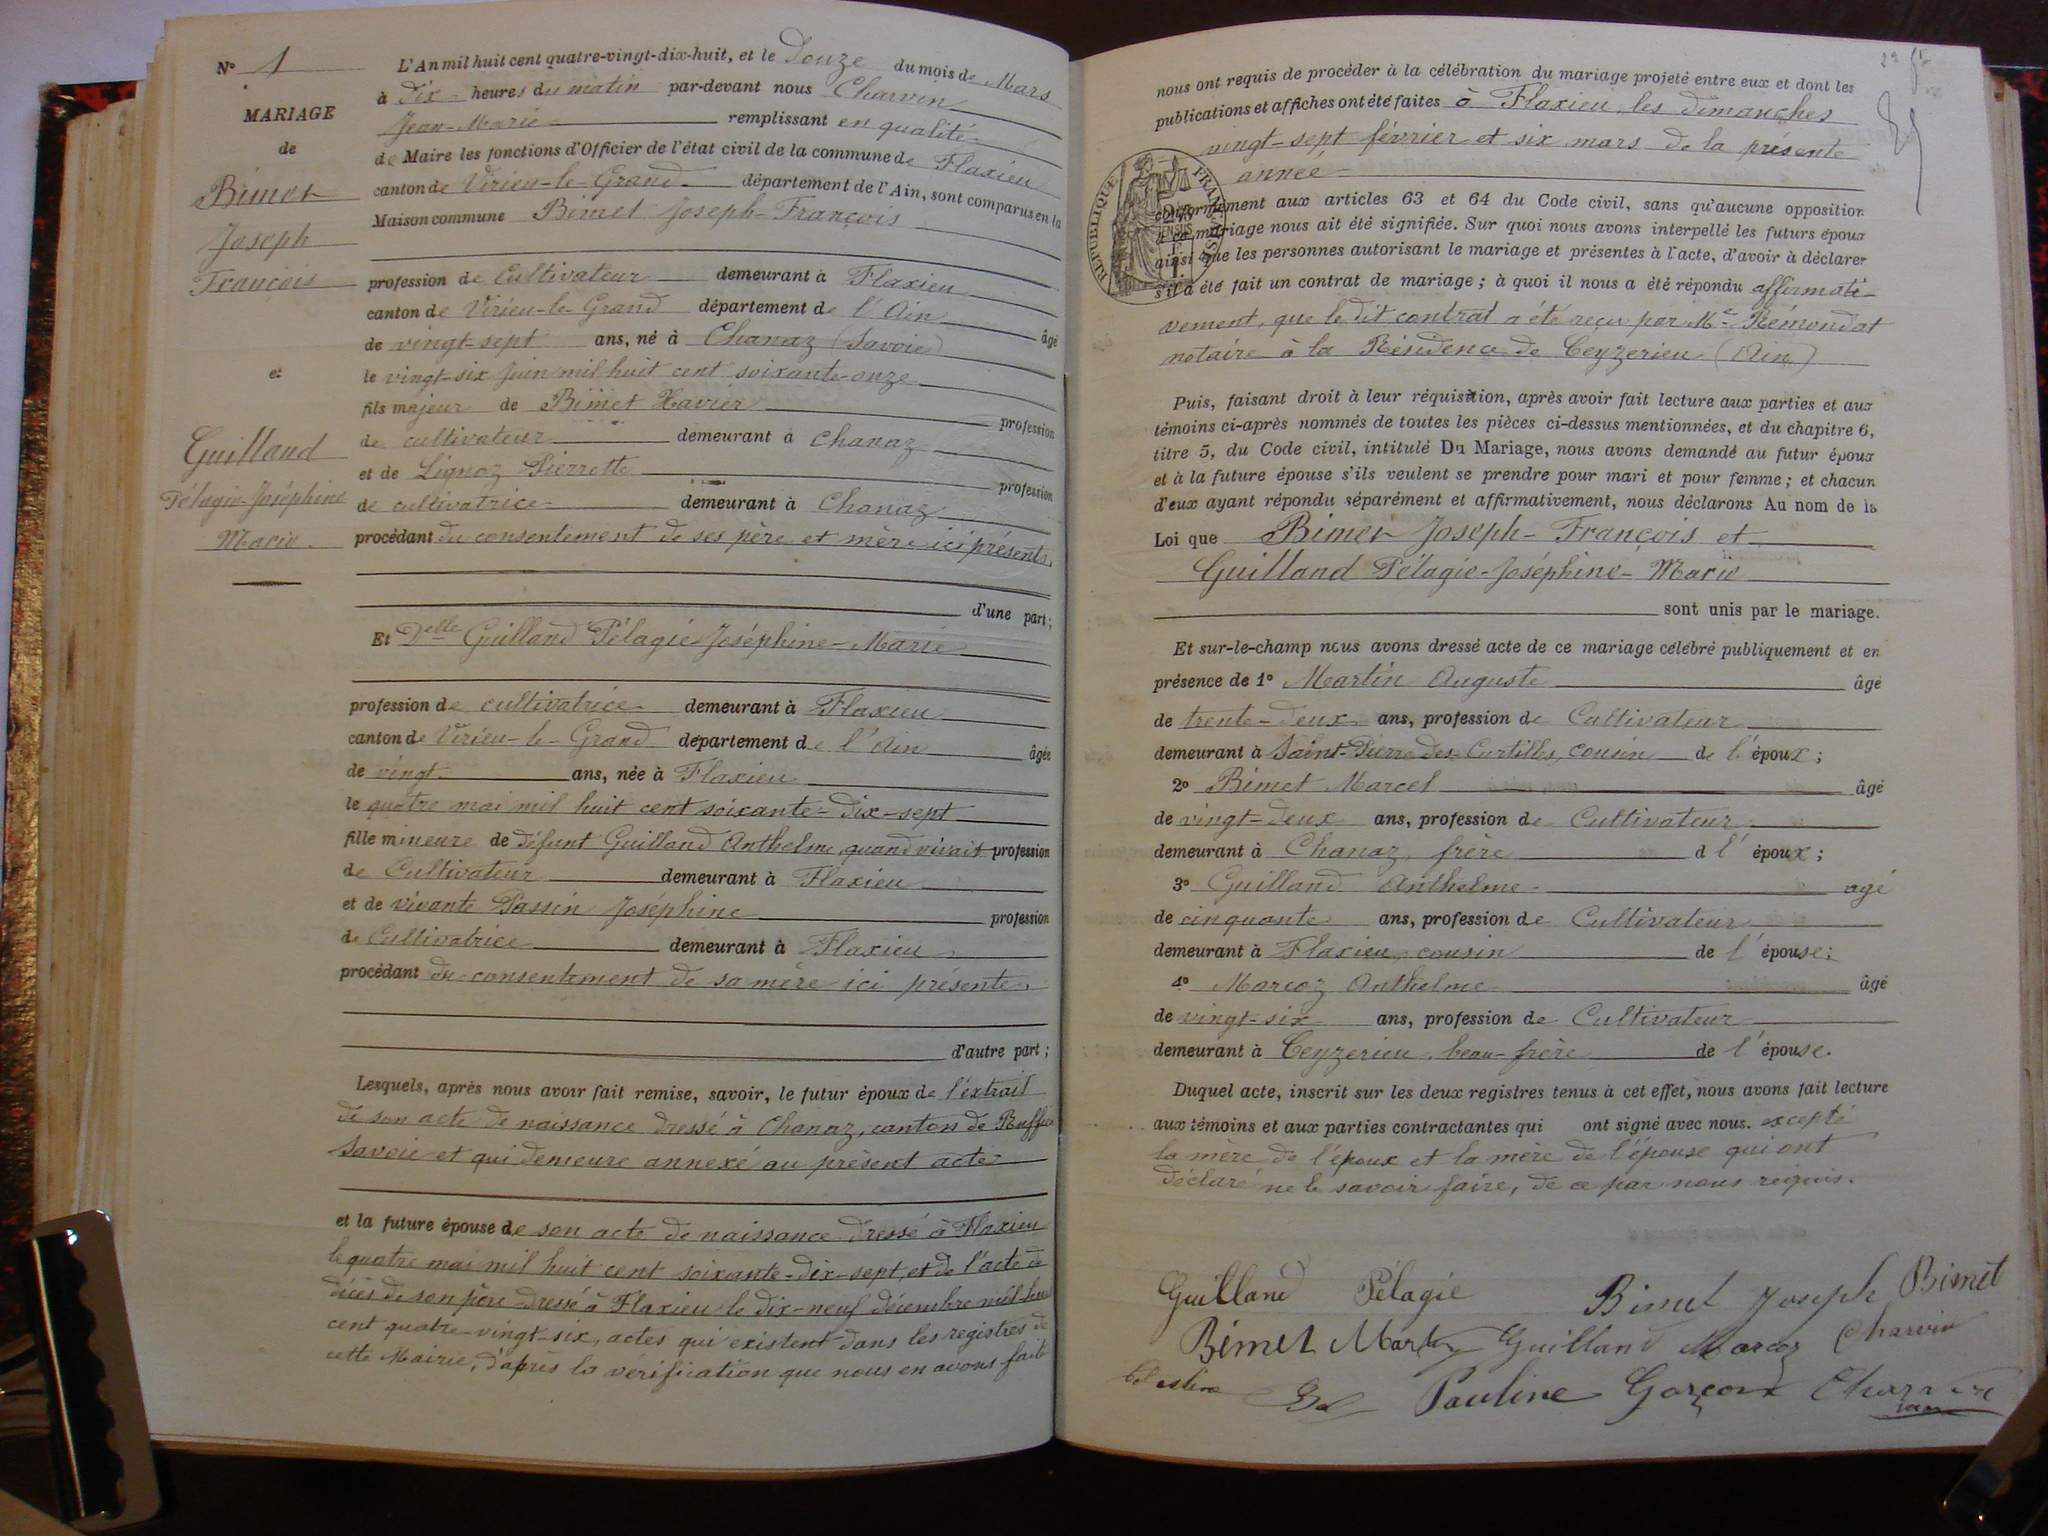 N° 1
MARIAGE
de
Bimet
Joseph
François
et
Guilland
Pélagie-Joséphine
Marie.
L'An mil huit cent quatre-vingt-dix-huit, et le Douze du mois de Mars
à dix heures du matin par-devant nous Charvin
Jean-Marie remplissant en qualité
de Maire les fonctions d'Officier de l'état civil de la commune de Flaxieu
canton de Virieu-le-Grand département de l'Ain, sont comparus en la
Maison commune Bimet Joseph-François
profession de Cultivateur demeurant à Flaxieu
canton de Virieu-le-Grand département de l'Ain
âgé
de vingt-sept ans, né à Chanaz (Savoie)
le vingt-six Juin mil huit cent soixante-onze
fils majeur de Bimet Xavier profession
de cultivateur demeurant à Chanaz
et de Lignoz Pierrette profession
de cultivatrice demeurant à Chanaz
procédant du consentement de ses père et mère ici présents.
d'une part;
Et Delle Guilland Pélagie-Joséphine-Marie
profession de cultivatrice demeurant à Flaxieu
canton de Virieu-le-Grand département de l'Ain âgée
de vingt ans, née à Flaxieu
le quatre mai mil huit cent soixante-dix-sept
fille mineure de défunt Guilland Anthelme, quand vivait profession
de Cultivateur demeurant à Flaxieu
et de vivante Passin Joséphine profession
de Cultivatrice demeurant à Flaxieu
procédant du consentement de sa mère ici présente.
d'autre part;
Lesquels, après nous avoir fait remise, savoir, le futur époux de l'extrait
de son acte de naissance dressé à Chanaz, canton de Ruffieu
Savoie et qui demeure annexé au présent acte
et la future épouse de son acte de naissance dressé à Flaxieu
le quatre mai mil huit cent soixante-dix-sept, et de l'acte de
décès de son père dressé à Flaxieu le dix-neuf décembre mil huit
cent quatre-vingt-six, actes qui existent dans les registres de
cette Mairie, d'après la vérification que nous en avons faite
nous ont requis de procéder à la célébration du mariage projeté entre eux et dont les
publications et affiches ont été faites à Flaxieu, les dimanches
vingt-sept février et six mars de la présente
année
REPUBLIQUE FRANÇAISE
conformément aux articles 63 et 64 du Code civil, sans qu'aucune opposition
à ce mariage nous ait été signifiée. Sur quoi nous avons interpellé les futurs époux
ainsi que les personnes autorisant le mariage et présentes à l'acte, d'avoir à déclarer
s'il a été fait un contrat de mariage; à quoi il nous a été répondu affirmati-
vement, que le dit contrat a été reçu par Me Rémondat
notaire à la Résidence de Ceyzerieu (Ain)
Puis, faisant droit à leur réquisition, après avoir fait lecture aux parties et aux
témoins ci-après nommés de toutes les pièces ci-dessus mentionnées, et du chapitre 6,
titre 5, du Code civil, intitulé Du Mariage, nous avons demandé au futur époux
et à la future épouse s'ils veulent se prendre pour mari et pour femme; et chacun
d'eux ayant répondu séparément et affirmativement, nous déclarons Au nom de la
Loi que Bimet Joseph-François et
Guilland Pélagie-Joséphine-Marie
sont unis par le mariage.
Et sur-le-champ nous avons dressé acte de ce mariage célébré publiquement et en
présence de 1° Martin Auguste âgé
de trente-deux ans, profession de Cultivateur
demeurant à Saint-Pierre des Curtilles, cousin de l'époux;
2° Bimet Marcel âgé
de vingt-deux ans, profession de Cultivateur
demeurant à Chanaz, frère d l'époux;
3° Guilland Anthelme agé
de cinquante ans, profession de Cultivateur
demeurant à Flaxieu, cousin de l'épouse;
4° Marcoz Anthelme âgé
de vingt-six ans, profession de Cultivateur
demeurant à Ceyzerieu, beau-frère de l'épouse.
Duquel acte, inscrit sur les deux registres tenus à cet effet, nous avons fait lecture
aux témoins et aux parties contractantes qui ont signé avec nous. excepté
la mère de l'époux et la mère de l'épouse qui ont
déclaré ne le savoir faire, de ce par nous requis.
Guilland Pélagie Bimet Joseph Bimet
Bimet Martin Guilland Marcoz Charvin
Pauline Charvin